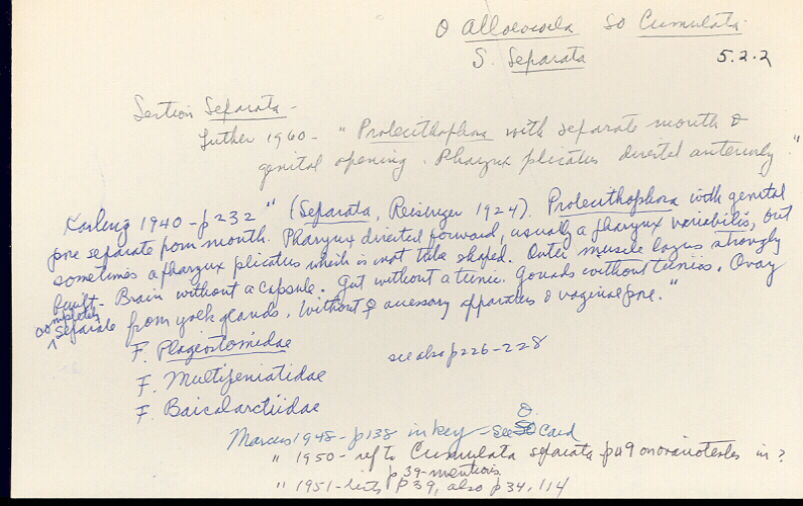 O Alloeocoela SO Cumulata
S. Separata 5.2.2
Section Separata -
Luther 1960 - "Prolecithophora with separate mouth &
genital opening. Pharynx plicatus directed anteriorly."
Karling 1940 - p 232 "(Separata, Reisinger 1924). Prolecithophora with genital
pore separate from mouth. Pharynx directed forward, usually a pharynx variabilis, but
sometimes a pharynx plicatus which is not tube shaped. Outer muscle layers strongly
built - Brain without a capsule. Gut without a tunic. Gonads without tunics. Ovary
completely
separate from yolk glands. Without ♀ accessory apparatus & vaginal pore."
F. Plagiostomidae
see also p 226-228
F. Multipeniatidae
F. Baicalarctiidae
Marcus 1948 - p 138 in key - see O. Card
" 1950 - ref to Cumulata separata p 49 on ovariotestes in ?
p 39 - mentions
" 1951 - lists p 39, also p 34, 114